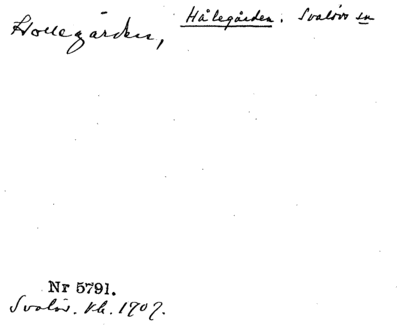 Hollegården,
Hålegården. Svalövs sn
Nr 5791.
Svalöv. kb. 1707.